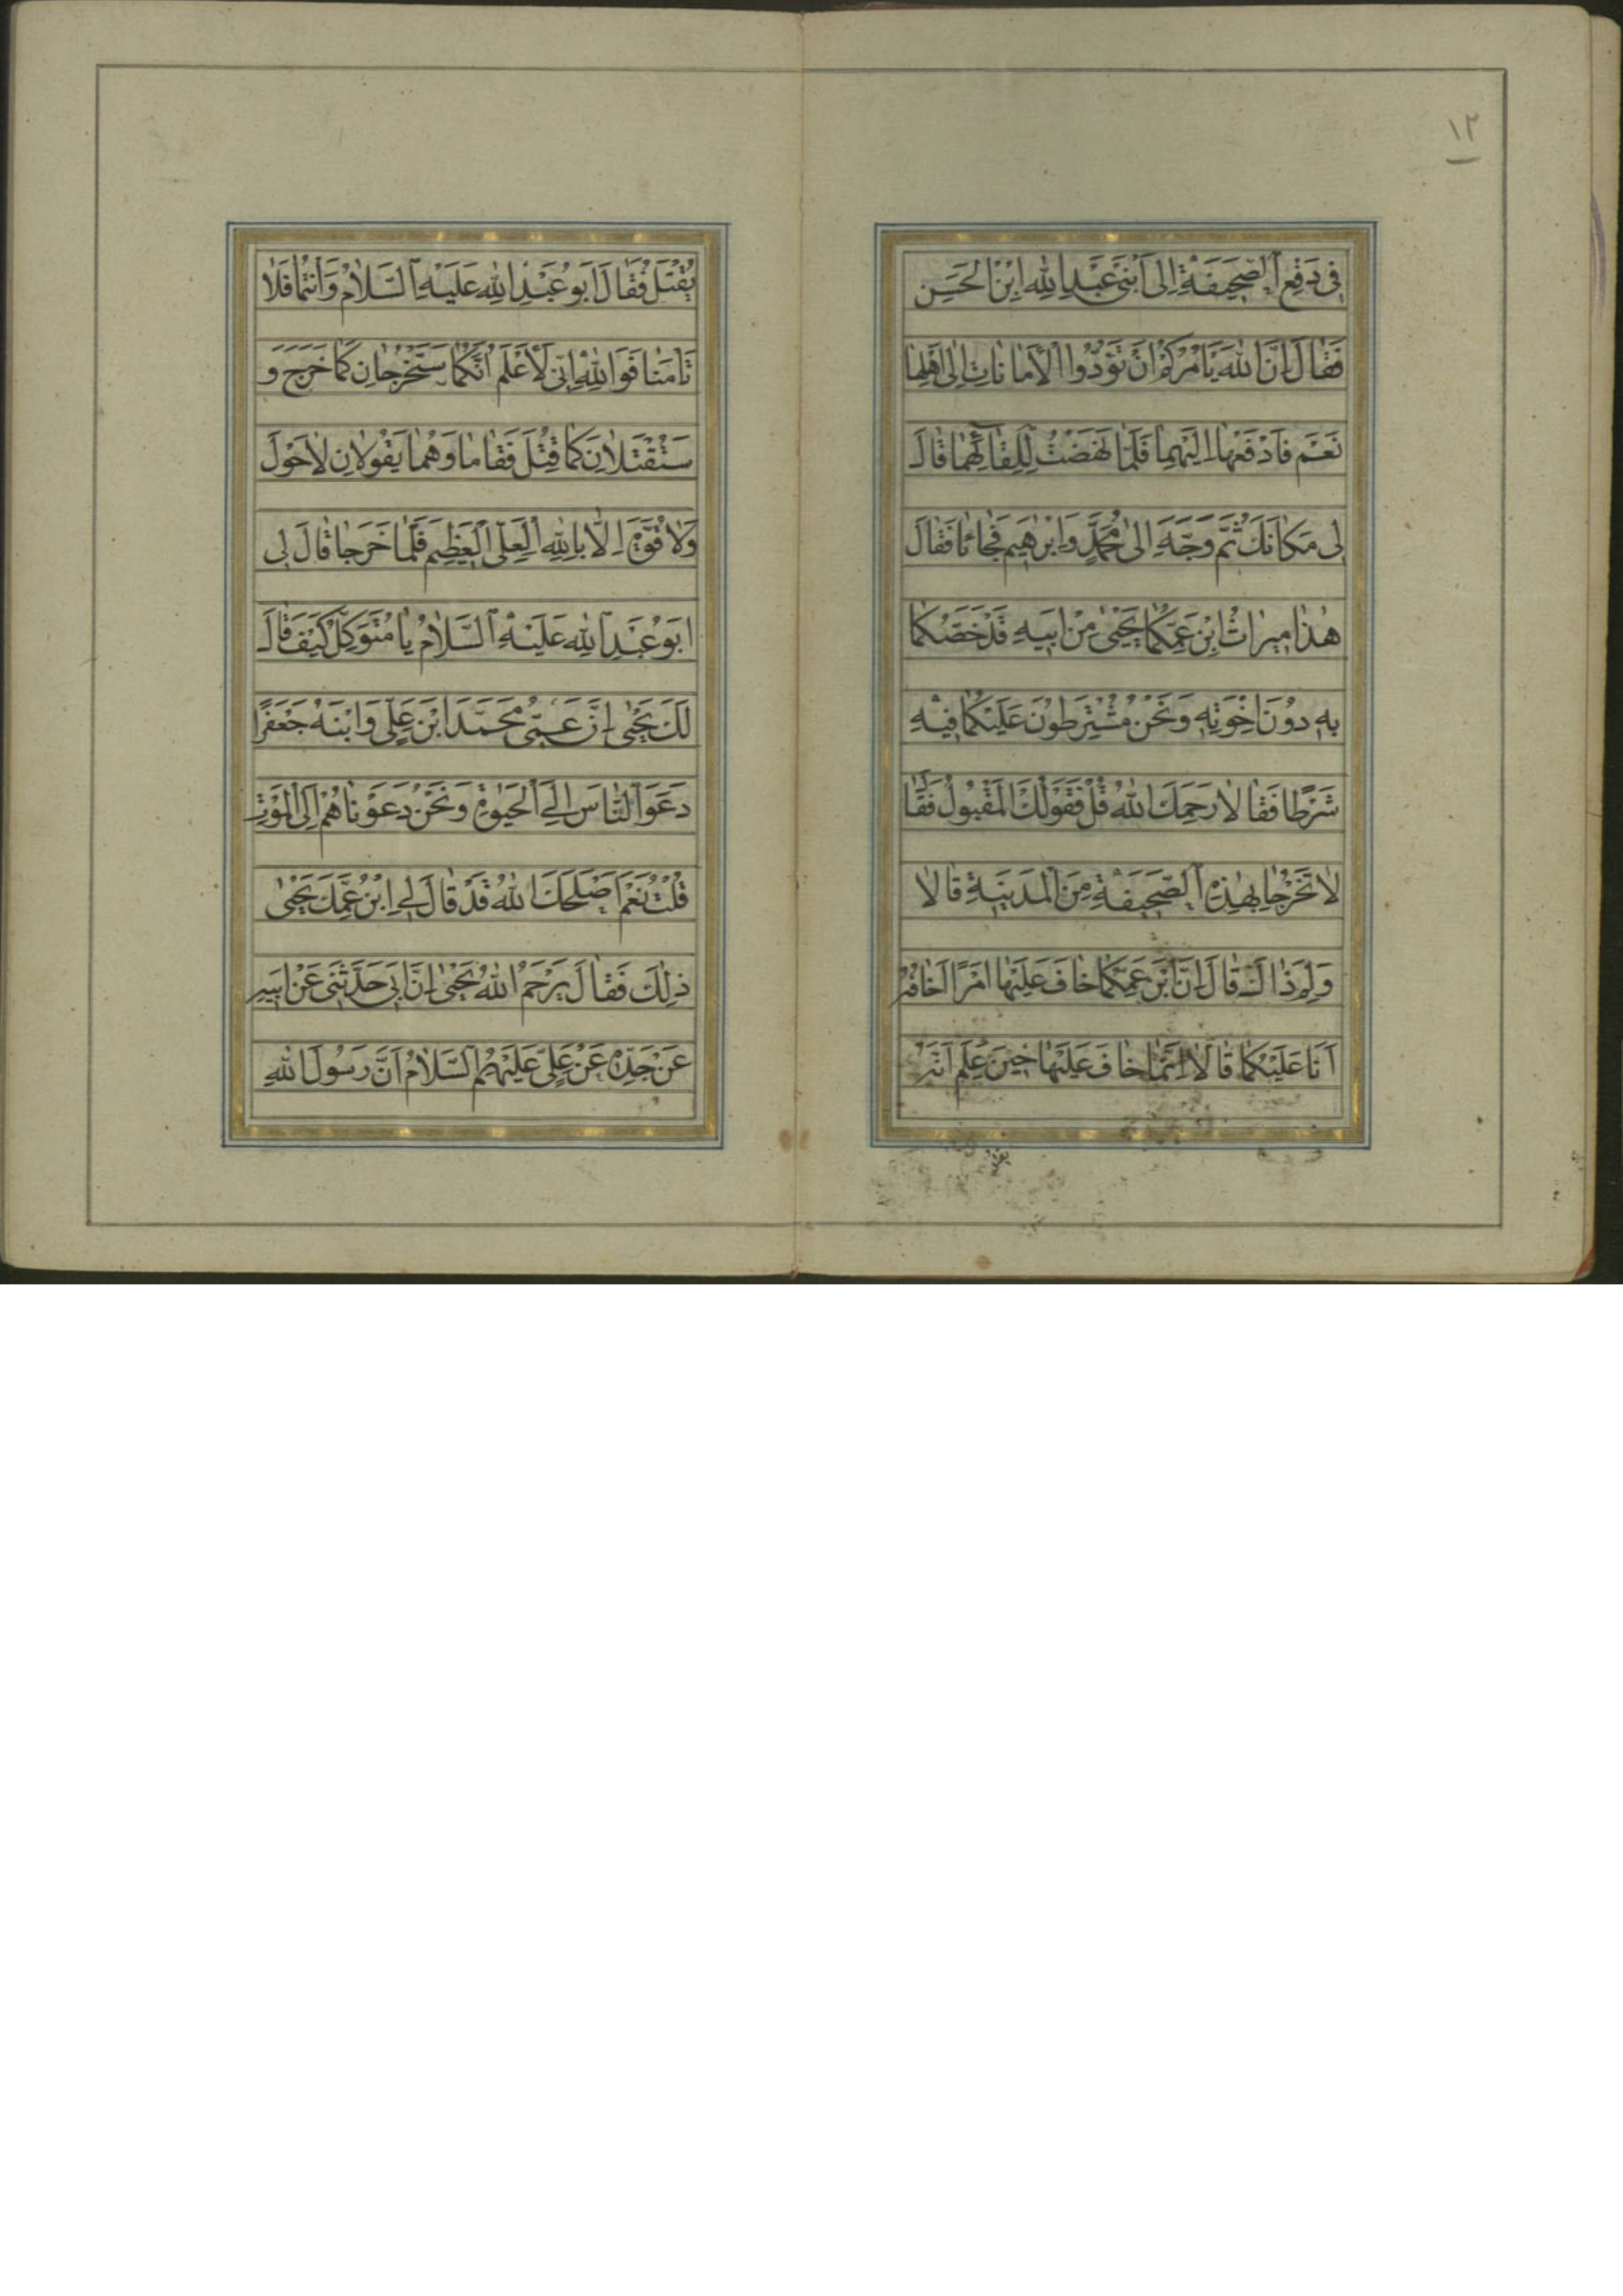 ١٢
فِى دَفْعِ ٱلصَّحِيفَةِ اِلٰى اَبْنَىْ عَبْدِ اللهِ ابْنِ الْحَسَنِ
فَقٰالَ اِنَّ اللهَ يَاْمُرُكُمْ اَنْ تُؤَدُّوا الْاَمٰانٰاتِ اِلٰى اَهْلِهٰا
نَعَمْ فَادْفَعْهٰا اِلَيْهِمٰا فَلَمّٰا نَهَضْتُ لِلِقٰآئِهِمٰا قٰالَ
لِى مَكٰانَكَ ثُمَّ وَجَّهَ اِلٰى مُحَمَّدٍ وَاِبْرٰهِيمَ فَجٰائٰا فَقٰالَ
هٰذٰا مِيرٰاثُ ابْنِ عَمِّكُمٰا يَحْيٰى مِنْ اَبِيهِ قَدْ خَصَّكُمٰا
بِهِ دُونَ اِخْوَتِهِ وَنَحْنُ مُشْتَرِطُونَ عَلَيْكُمٰا فِيهِ
شَرْطًا فَقٰالٰا رَحِمَكَ اللهُ قُلْ فَقَوْلُكَ الْمَقْبُولُ فَقٰا
لٰا تَخْرُجٰا بِهٰذِهِ ٱلصَّحِيفَةِ مِنَ الْمَدِينَةِ قٰالٰا
وَلِمَ ذٰاكَ قٰالَ اِنَّ ابْنَ عَمِّكُمٰا خٰافَ عَلَيْهٰا اَمْرًا اَخٰافُهُ
اَنَا عَلَيْكُمٰا قٰالٰا اِنَّمٰا خٰافَ عَلَيْهٰا حِينَ عَلِمَ اَنَّهُ
يُقْتَلُ فَقٰالَ اَبُو عَبْدِ اللهِ عَلَيْهِ ٱلسَّلٰامُ وَاَنْتُمٰا فَلٰا
تَاْمَنٰا فَوَاللهِ اِنّى لَاَعْلَمُ اَنَّكُمٰا سَتَخْرُجٰانِ كَمٰا خَرَجَ وَ
سَتُقْتَلٰانِ كَمٰا قُتِلَ فَقٰامٰا وَهُمٰا يَقُولٰانِ لٰا حَوْلَ
وَلٰا قُوَّةَ اِلّٰا بِاللهِ الْعَلِىِّ الْعَظِيمِ فَلَمّٰا خَرَجٰا قٰالَ لِى
اَبُو عَبْدِ اللهِ عَلَيْهِ ٱلسَّلٰامُ يٰا مُتَوَكِّلُ كَيْفَ قٰالَ
لَكَ يَحْيٰى اِنَّ عَمّى مُحَمَّدَ ابْنَ عَلِىٍّ وَابْنَهُ جَعْفَرًا
دَعَوَا النّٰاسَ اِلَى الْحَيٰوةِ وَنَحْنُ دَعَوْنٰاهُمْ اِلَى الْمَوْتِ
قُلْتُ نَعَمْ اَصْلَحَكَ اللهُ قَدْ قٰالَ لِى ابْنُ عَمِّكَ يَحْيٰى
ذٰلِكَ فَقٰالَ يَرْحَمُ اللهُ يَحْيٰى اِنَّ اَبِى حَدَّثَنِى عَنْ اَبِيهِ
عَنْ جَدِّهِ عَنْ عَلِىٍّ عَلَيْهِمُ ٱلسَّلٰامُ اَنَّ رَسُولَ اللهِ